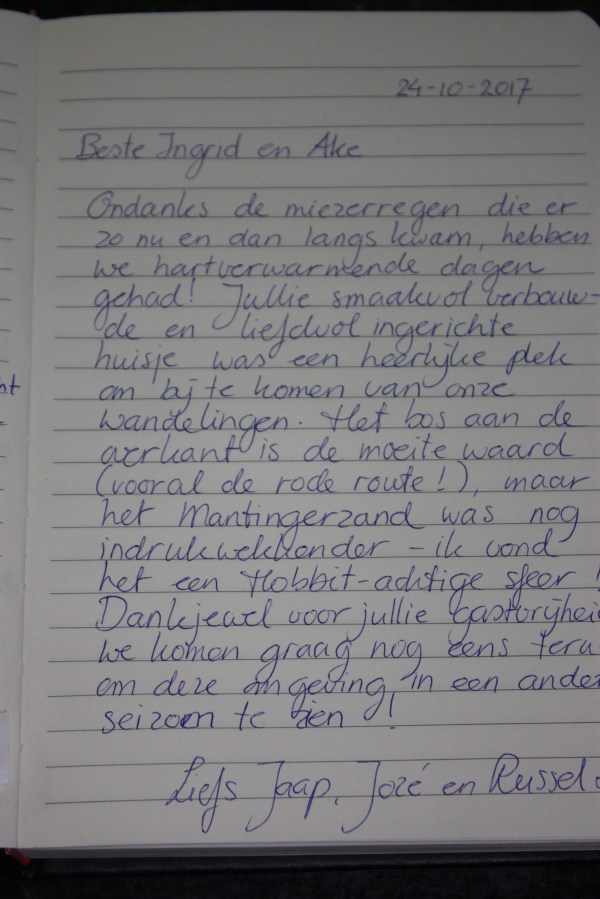 24-10-2017
Beste Ingrid en Ake
Ondanks de miezerregen die er
zo nu en dan langs kwam, hebben
we hartverwarmende dagen
gehad! Jullie smaakvol verbouw-
de en liefdvol ingerichte
huisje was een heerlijke plek
om bij te komen van onze
wandelingen. Het bos aan de
overkant is de moeite waard
(vooral de rode route!), maar
het Mantingerzand was nog
indrukwekkender - ik vond
het een Hobbit-achtige sfeer!
Dankjewel voor jullie gastvrijhei
we komen graag nog eens teru
om deze omgeving in een ander
seizoen te zien!
Liefs Jaap, José en Russel
ht